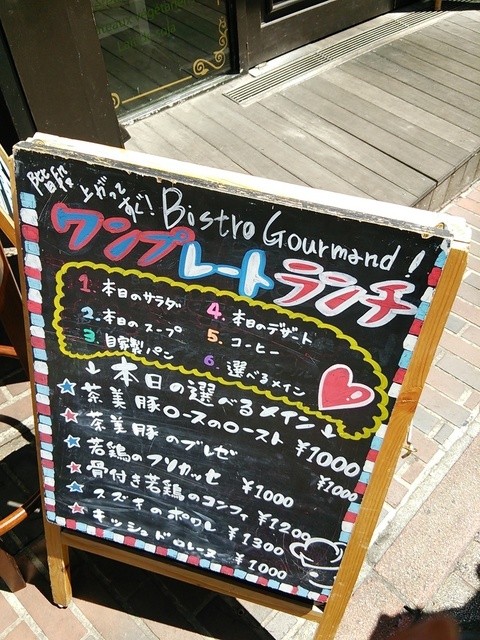 上がってすぐ!
Bistro Gourmand!
ワンプレートランチ
1. 本日のサラダ
2. 本日のスープ
3 自家製パン
4. 本日のデザート
5. コーヒー
6. 選べるメイン
↓本日の選べるメイン↓
☆茶美豚ロースのロースト ¥1000
☆茶美豚のブレゼ ¥1000
☆若鶏のフリカッセ ¥1000
☆骨付き若鶏のコンフィ ¥1200
☆スズキのポワレ ¥1300
☆キッシュドロレーヌ ¥1000